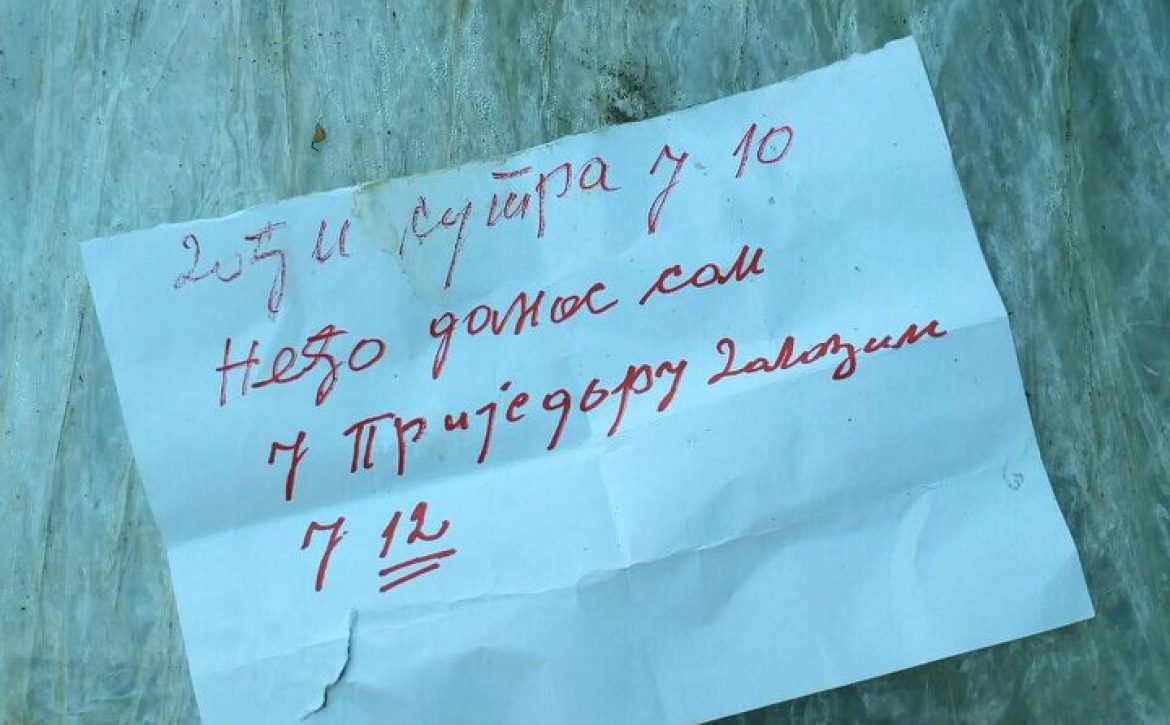 Дођи сутра у 10
Неђо данас сам
у Приједору долазим
у 12